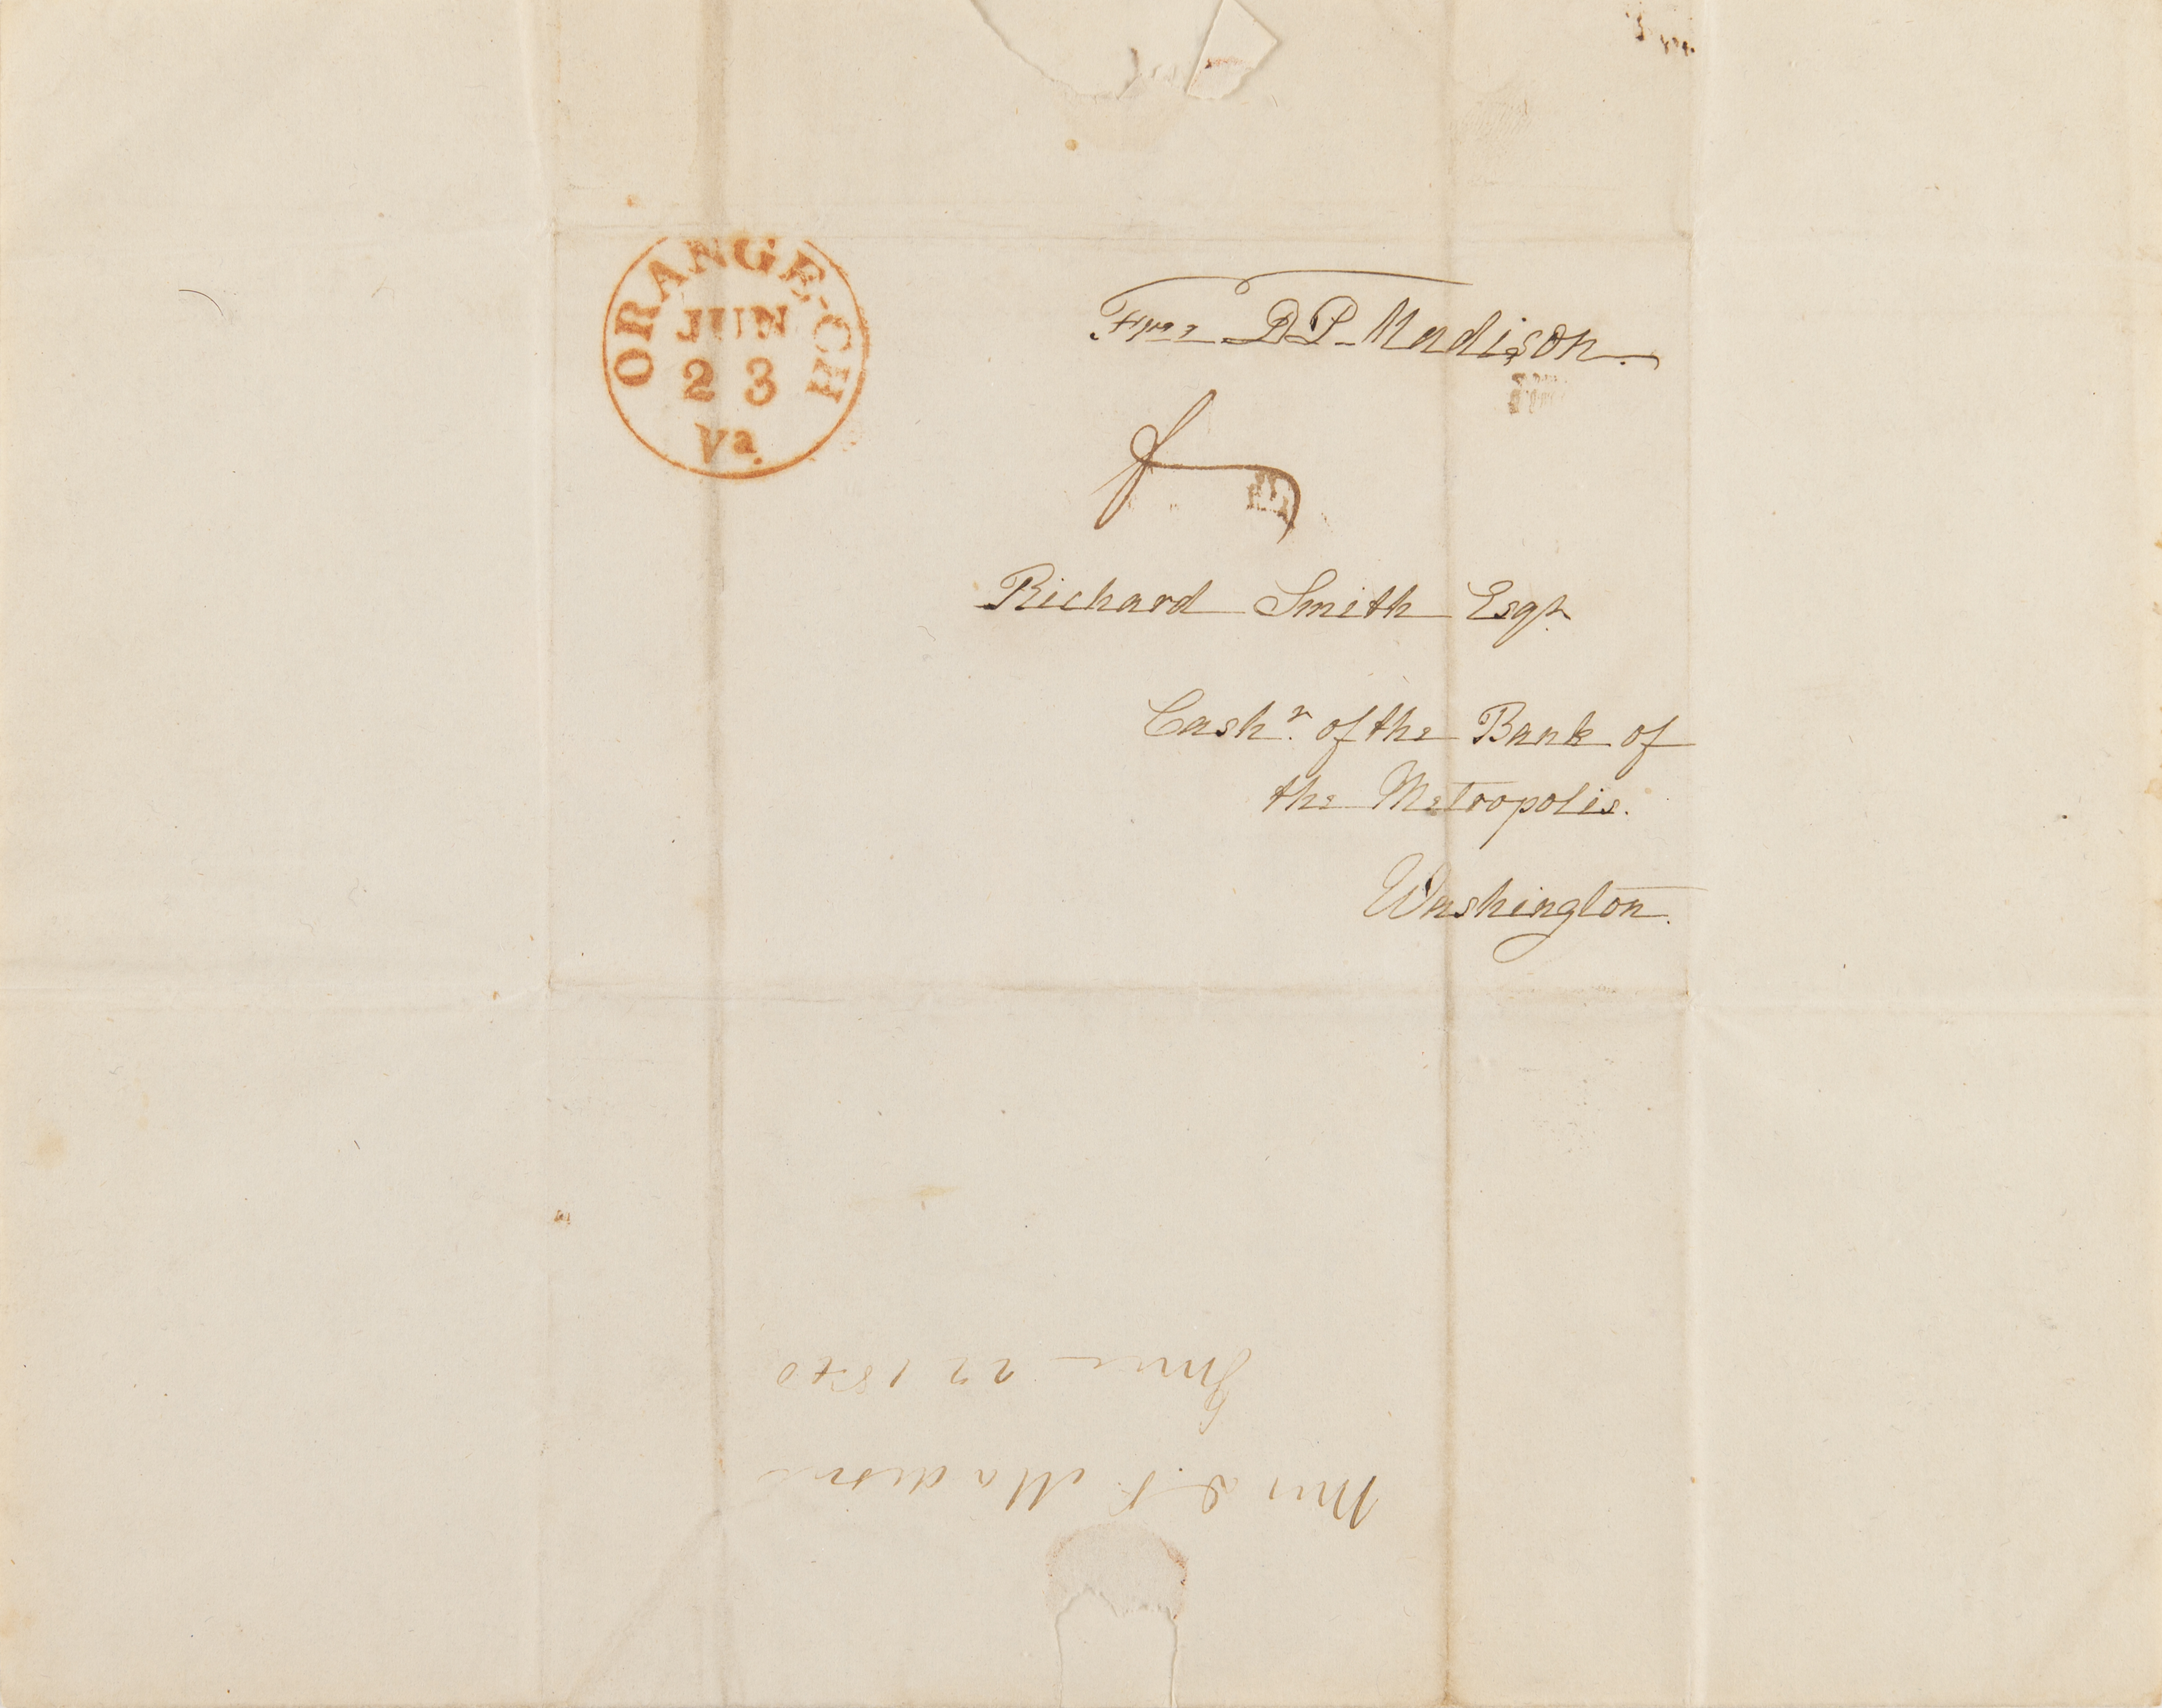 ORANGE-CH
JUN
23
Va.
Free D P Madison.
Richard Smith Esqr.
Cashr. of the Bank of
the Metropolis.
Washington.
Mrs D. P. Madison
June 22 1840